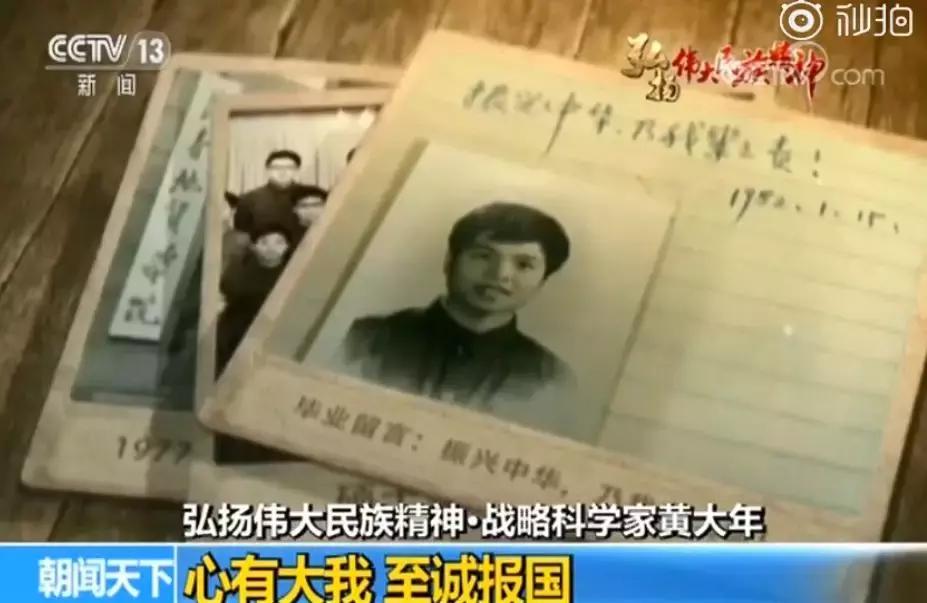 CCTV 13
新闻
秒拍
弘扬伟大民族精神
com
振兴中华，乃我辈之责！
1982.1.15.
毕业留言：振兴中华，乃我
1977
弘扬伟大民族精神·战略科学家黄大年
朝闻天下
心有大我 至诚报国